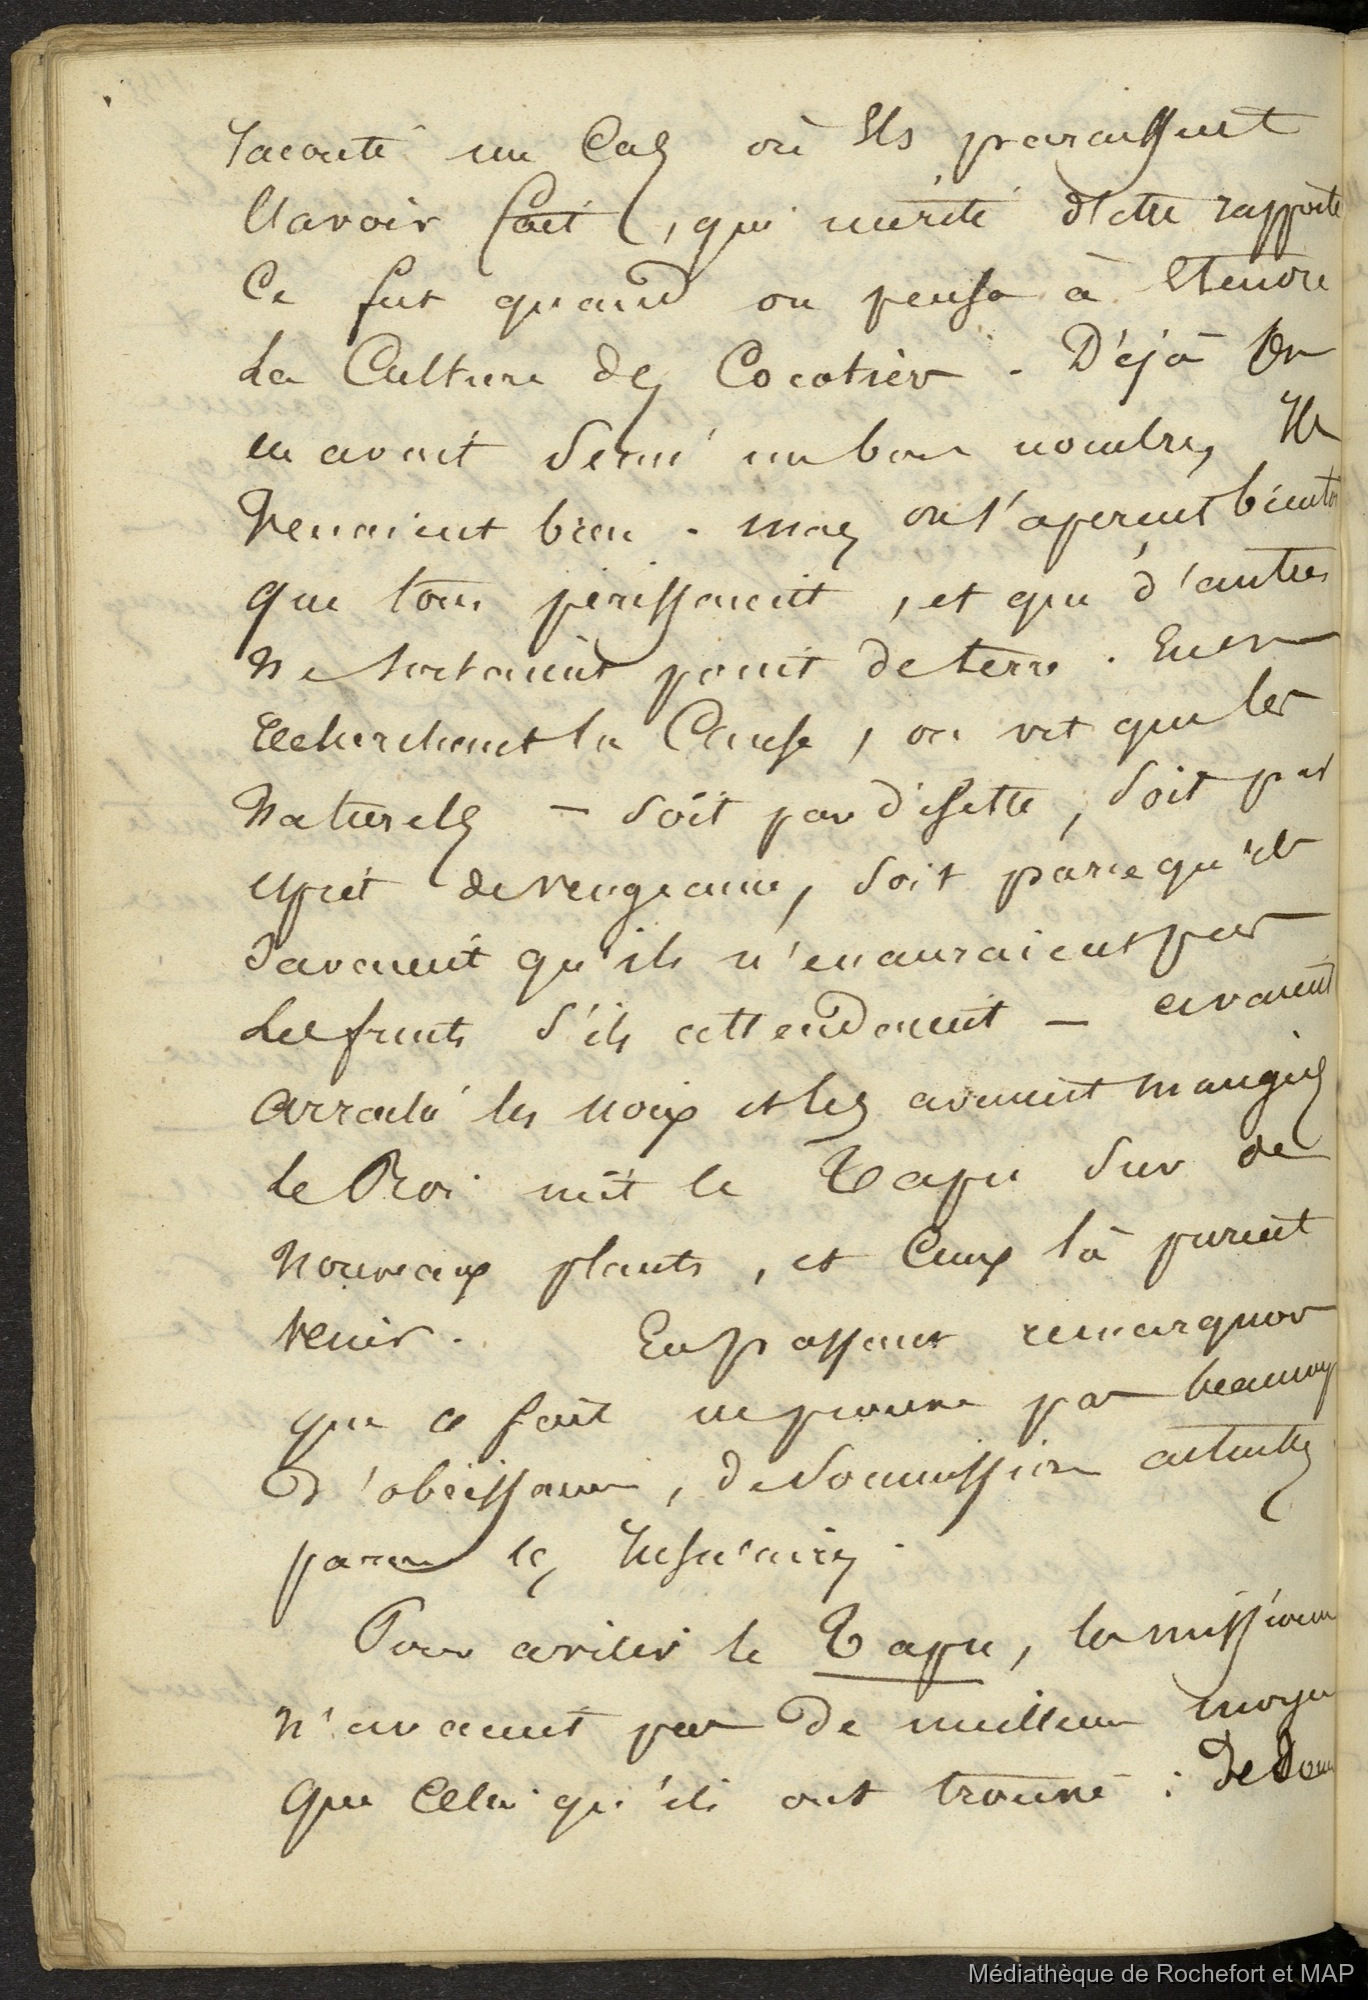 raconté un Cas où Ils paraissent
l'avoir fait, qui mérite d'être rapporté
Ce fut quand on pensa à étendre
La Culture des Cocotiers. Déjà on
en avait semé un bon nombre, Ils
Venaient bien. mais on s'aperçut bientôt
que tous périssaient, et que d'autres
Ne sortaient point de terre. En en
recherchant la Cause, on vit que les
Naturels – soit par disette, soit par
esprit de vengeance, soit parce qu'ils
savaient qu'ils n'en auraient pas
Les fruits s'ils attendaient – avaient
arraché les noix et les avaient mangées
Le Roi mit le Tapu sur de
Nouveaux plants, et Ceux là purent
venir. En passant remarquons
que ce fait ne prouve pas beaucoup
d'obéissance, de Soumission
parmi les Insulaires.
Pour aviler le Tapu, les missionn
N'avaient pas de meilleur moyen
Que Celui qu'ils ont trouvé : de
Médiathèque de Rochefort et MAP